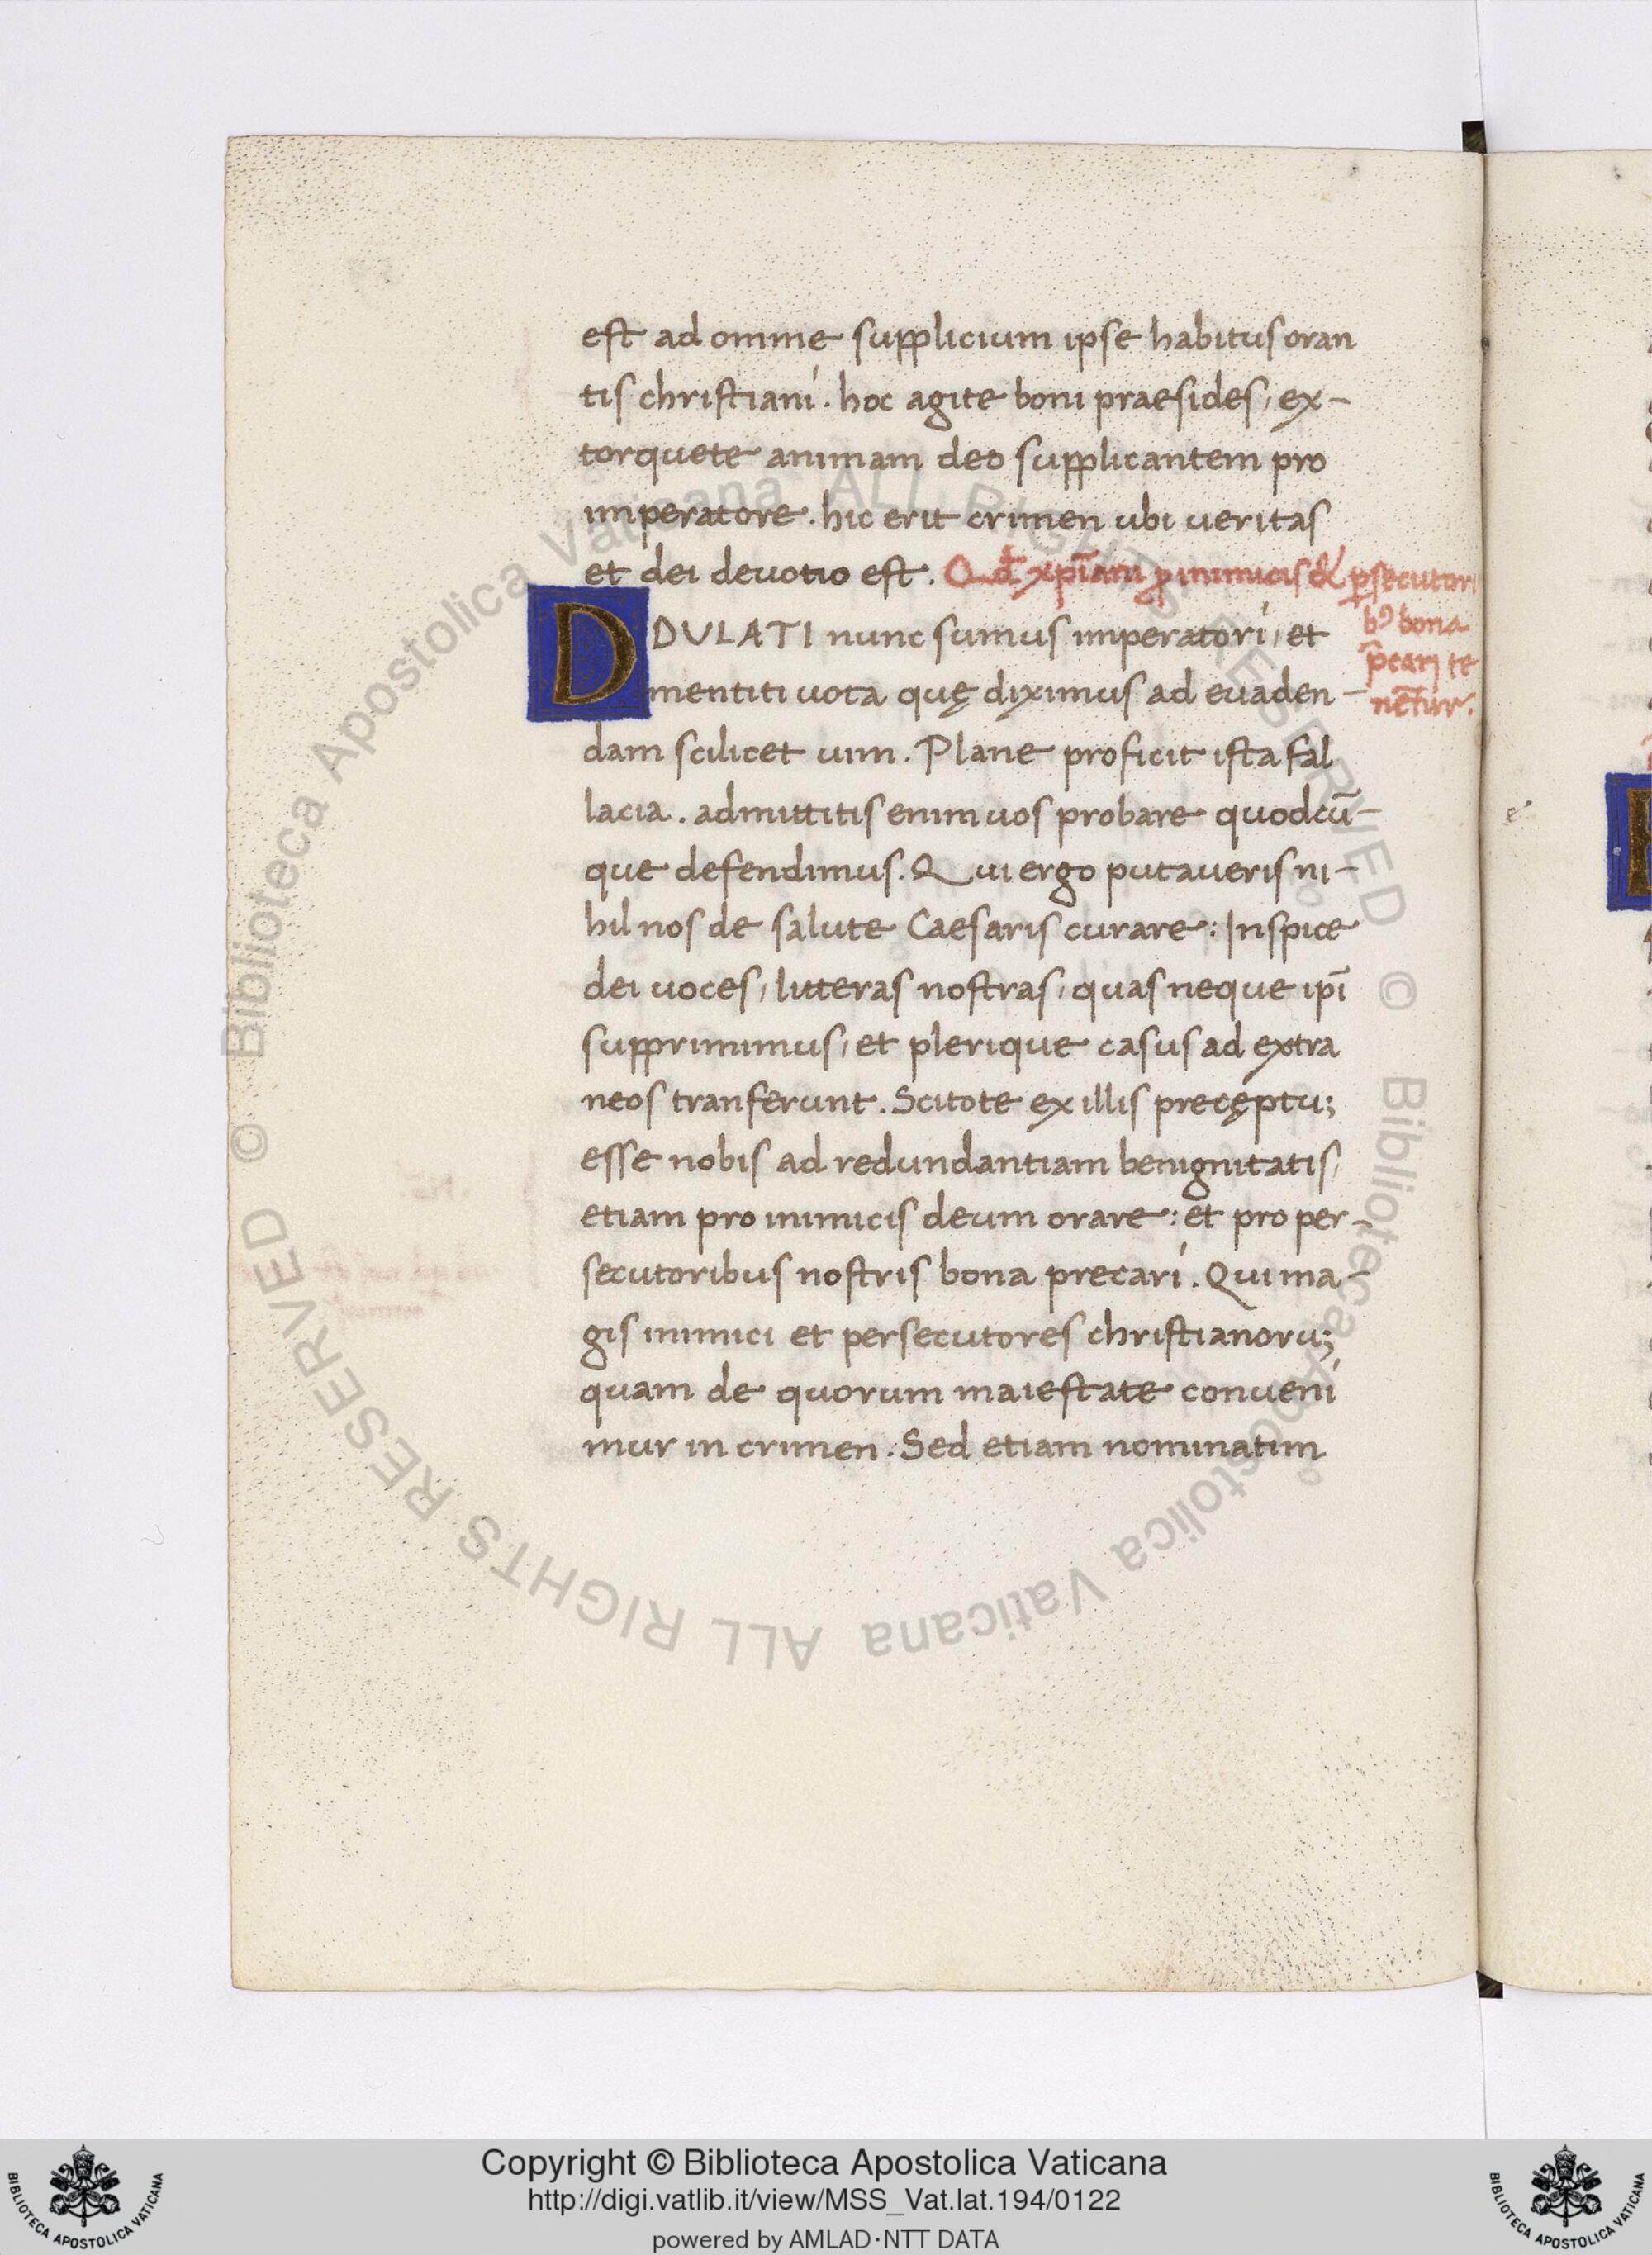 est ad omne supplicium ipse habitus oran
tis christiani. hoc agite boni praesides, ex-
torquete animam deo supplicantem pro
imperatore. hic erit crimen ubi veritas
et dei devotio est. Qđ xp̄iani ꝓ inimicis & ꝑsecutori
bꝰ bona
p̄cari te
nēt̄ur.
D DULATI nunc sumus imperatori, et
mentiti vota quę diximus ad evaden-
dam scilicet vim. Plane proficit ista fal
lacia. admittitis enim vos probare quodcū-
que defendimus. Qui ergo putaveris ni-
hil nos de salute Caesaris curare: Inspice
dei voces, litteras nostras, quas neque ipī
supprimimus, et plerique casus ad extra
neos tranferunt. Scitote ex illis precęptu;
esse nobis ad redundantiam benignitatis,
etiam pro inimicis deum orare: et pro per-
secutoribus nostris bona precari. Qui ma-
gis inimici et persecutores christianoru;
quam de quorum maiestate conveni
mur in crimen. Sed etiam nominatim
© Biblioteca Apostolica Vaticana ALL RIGHTS RESERVED © Biblioteca Apostolica Vaticana ALL RIGHTS RESERVED
Copyright © Biblioteca Apostolica Vaticana
http://digi.vatlib.it/view/MSS_Vat.lat.194/0122
powered by AMLAD·NTT DATA
BIBLIOTECA APOSTOLICA VATICANA
BIBLIOTECA APOSTOLICA VATICANA